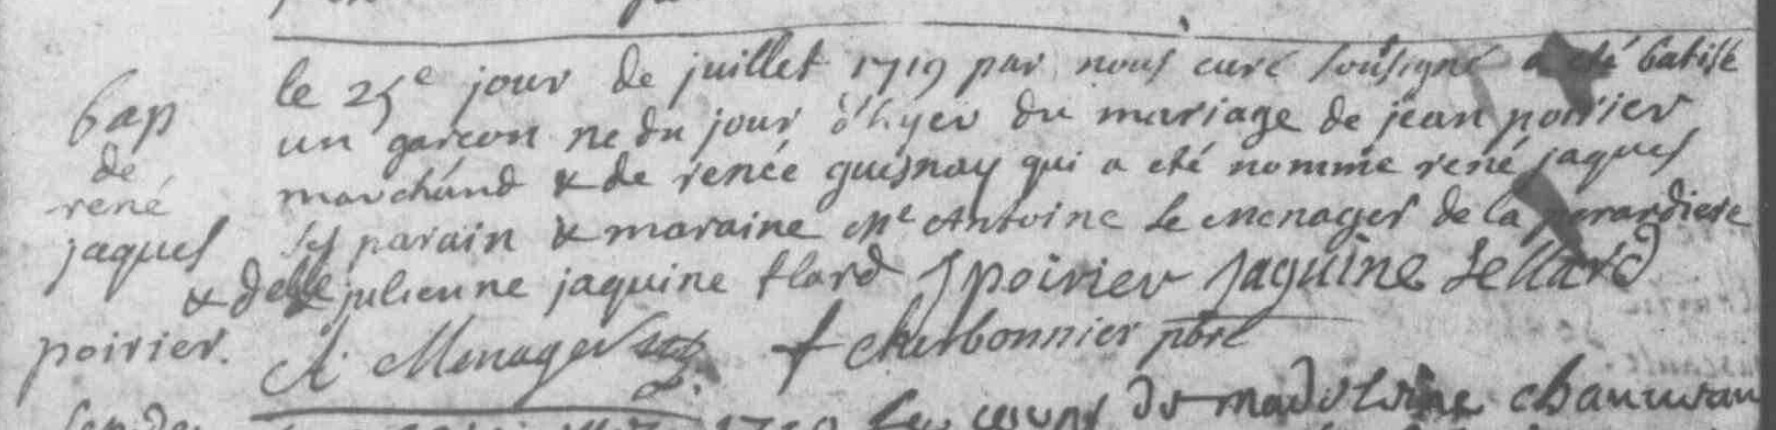 bap
de
rené
jaques
poirier.
le 25e jour de juillet 1719 par nous curé sousigné a eté batisé
un garcon ne du jour d'hyer du mariage de jean poirier
marchand & de renée guesnay qui a eté nommé rené jaques
ses parain & maraine Me Antoine Le Menager de la perardiere
& delle julienne jaquine flard J poirier Jaquine Fellard
A Menager f cherbonnier pbre
1719 Le corps de